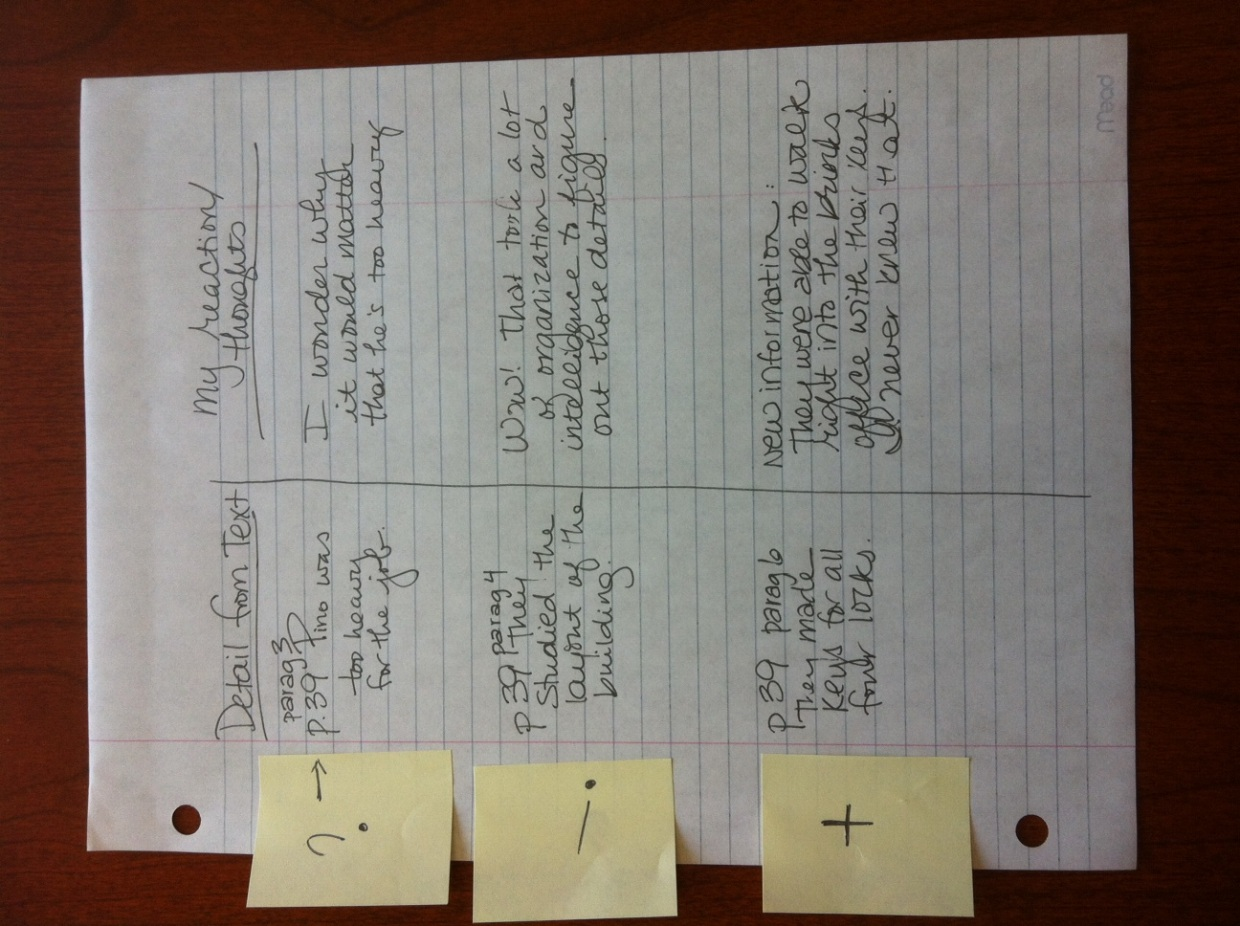 My reaction/
thoughts
Detail from Text
?
→
parag 3
p. 39 Pino was
too heavy
for the job.
I wonder why
it would matter
that he's too heavy
!
p 39 parag 4
They
Studied the
layout of the
building.
Wow! That took a lot
of organization and
intelligence to figure
out those details.
+
p 39 parag 6
They made
Keys for all
four locks.
New information:
They were able to walk
right into the Brinks
office with their keys.
I never knew that.
Mead